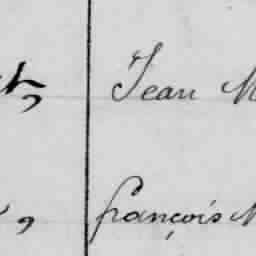 Jean M
françois M